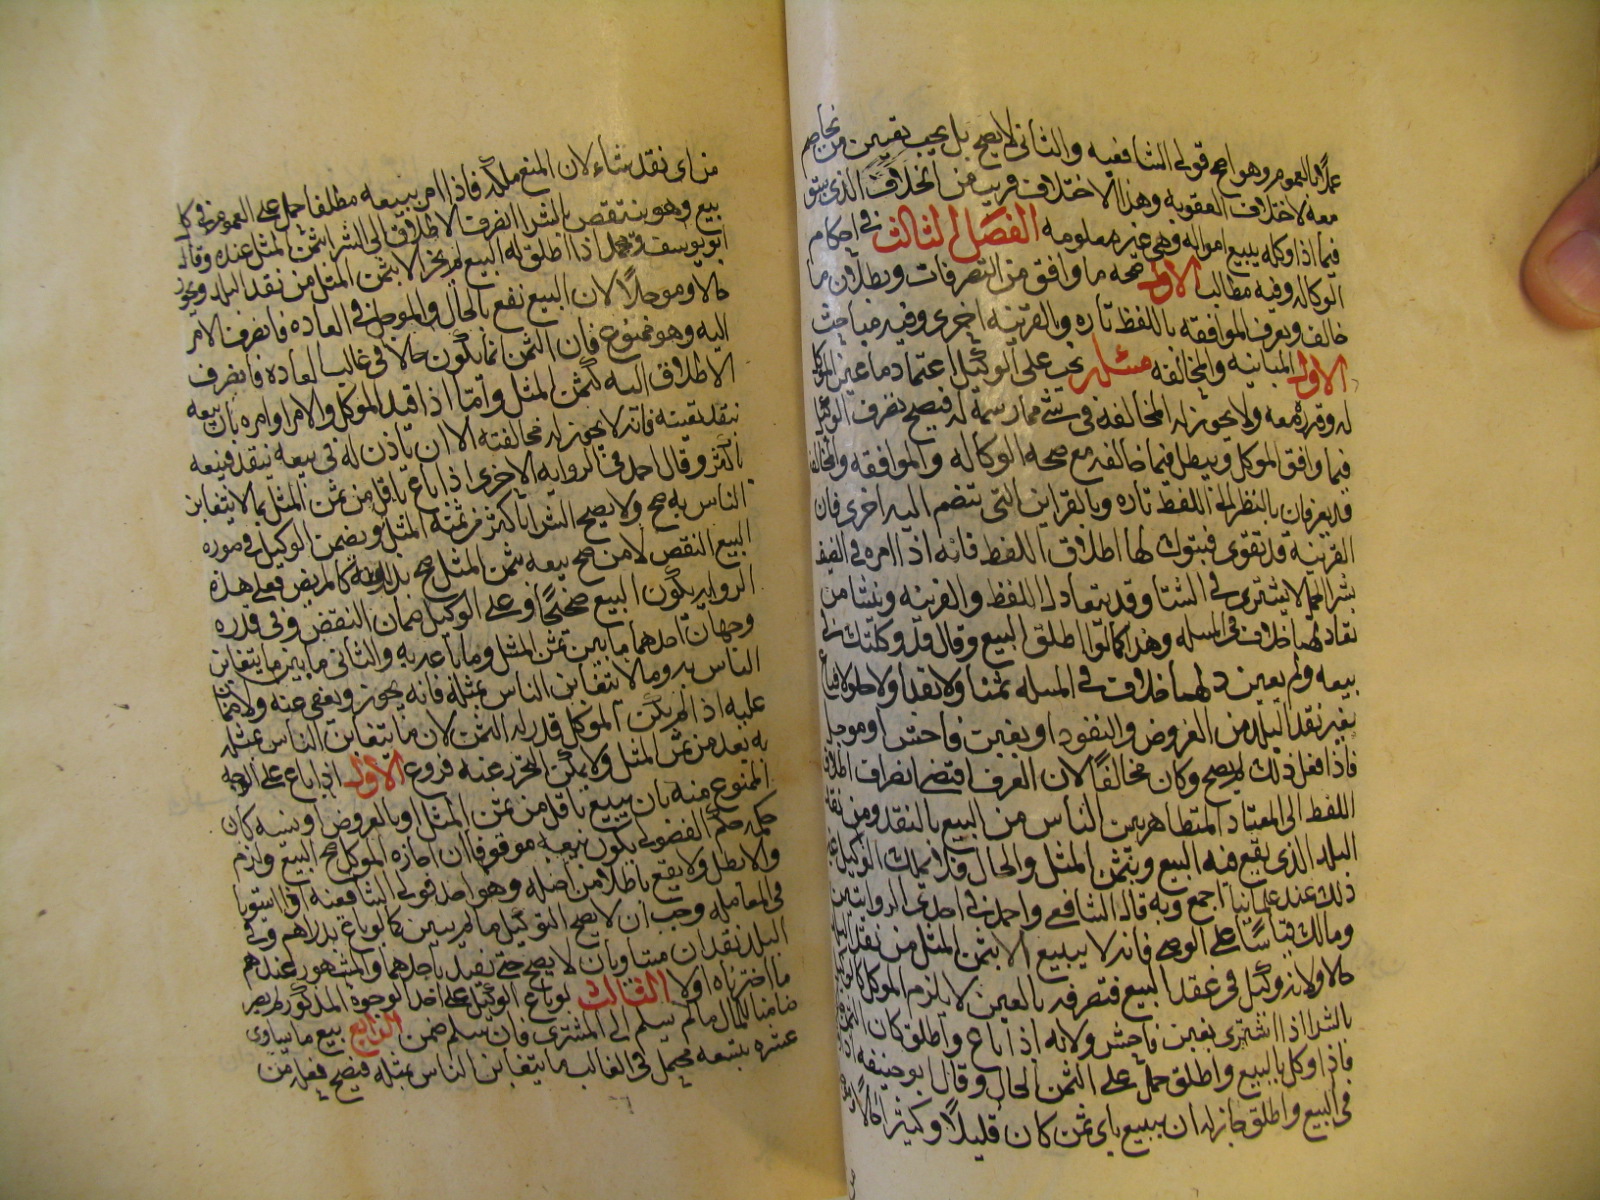 عملا بالعموم وهو اصح قولي الشافعيه والثاني لا يصح بل يجب تعيين من يخاصم
معه لاختلاف العقوبه وهذا الاختلاف قريب من الخلاف الذي سبق
فيما اذا وكله ببيع امواله وهي غير معلومه الفصل الثالث في احكام
الوكاله وفيه مطالب الاول صحه ما وافق من التصرفات وبطلان ما
خالف ويعرف الموافقه باللفظ تاره وبالقرينه اخرى وفيه مباحث
الاول المباينه والمخالفه مسئله يجب على الوكيل اعتماد ما عين الموكل
له وقرره معه ولا يجوز له المخالفه في شي مما رسمه له فيصح تصرف الوكيل
فيما وافق الموكل ويبطل فيما خالفه مع صحه الوكاله والموافقه والمخالفه
قد يعرفان بالنظر الى اللفظ تاره وبالقراين التي تنضم اليه اخرى فان
القرينه قد تقوى فيترك لها اطلاق اللفظ فانه اذا امره في الصيف
بشرا لا يشتري في الشتا وقد يتعادل اللفظ والقرينه وينشا من
تعادلهما خلاف في المسله وهذا كما لو اطلق البيع وقال قد وكلتك في
بيعه ولم يعين خلاف في المسله ثمنا ولا نقدا ولا حلولا فباع
بغير نقد البلد من العروض والنقود او بغبن فاحش او موجل
فاذا فعل ذلك لم يصح وكان مخالفا لان العرف اقتضى انصراف اطلاق
اللفظ الى المعتاد المتظاهر بين الناس من البيع بالنقد ومن نقد
البلد الذي يقع فيه البيع وبثمن المثل والحال فلا يملك الوكيل غير
ذلك عند علمائنا اجمع وبه قال الشافعي واحمد في احدى الروايتين
ومالك قياسا على الوصي فانه لا يبيع الا بثمن المثل من نقد البلد
حالا ولانه وكيل في عقد البيع فتصرفه بالغبن لا يلزم الموكل كالوكيل
بالشرا اذا اشترى بغبن فاحش ولانه اذا باع واطلق كان الثمن
فاذا وكل بالبيع واطلق حمل على الثمن الحال وقال ابو حنيفه اذا
في البيع واطلق جاز له ان يبيع باي ثمن كان قليلا وكثيرا حالا
من اي نقد شاء لان المنع ملكه فاذا امر ببيعه مطلقا حمل على العموم في كل
بيع وهو ينتقض بالشرا انصرف الاطلاق الى الشرا بثمن المثل عنده وقال
ابو يوسف ومحمد اذا اطلق له البيع لم يجز الا بثمن المثل من نقد البلد ويجوز
حالا وموجلا لان البيع يقع بالحال والموجل في العاده فانصرف الامر
اليه وهو ممنوع فان الثمن انما يكون حالا في غالب العاده فانصرف
الاطلاق اليه كثمن المثل واما اذا قيد الموكل والامر او امره بان يبيعه
بنقد بعينه فانه لا يجوز له مخالفته الا ان ياذن له في بيعه بنقد فيبيعه
باكثر وقال احمد في الروايه الاخرى اذا باع باقل من ثمن المثل بما لا يتغابن
الناس به صح ولا يصح الشرا باكثر من ثمنه المثل ويضمن الوكيل في صوره
البيع النقص لان من صح بيعه بثمن المثل صح بدونه كالمريض فعلى هذه
الروايه يكون البيع صحيحا وعلى الوكيل ضمان النقص وفي قدره
وجهان احدهما ما بين ثمن المثل وما باعه به والثاني ما بين ما يتغابن
الناس به وما لا يتغابن الناس بمثله فانه يجوز ويعفى عنه ولا ضمان
عليه اذا لم يكن الموكل قدر له الثمن لان ما يتغابن الناس بمثله
به يعد من ثمن المثل ولا يمكن التحرز عنه فروع الاول اذا باع على الوجه
الممنوع منه بان يبيع باقل من ثمن المثل او بالعروض او نسيه كان
حكمه حكم الفضولي يكون بيعه موقوفا ان اجازه الموكل صح البيع ولزم
والا بطل ولا يقع باطلا من اصله وهو احد قولي الشافعيه استويا
في المعامله وجب ان لا يصح التوكيل ما لم يبين كما لو باع بدراهم وفي
البلد نقدان متساويان لا يصح حتى يقيد باحدهما والمشهور عندهم
ما اخترناه اولا الثالث لو باع الوكيل على احد الوجوه المذكوره لم يصر
ضامنا للمال ما لم يسلم الى المشتري فان سلم ضمن الرابع بيع ما يساوي
عشره بتسعه محتمل في الغالب ما يتغابن الناس بمثله فيصح فعله من